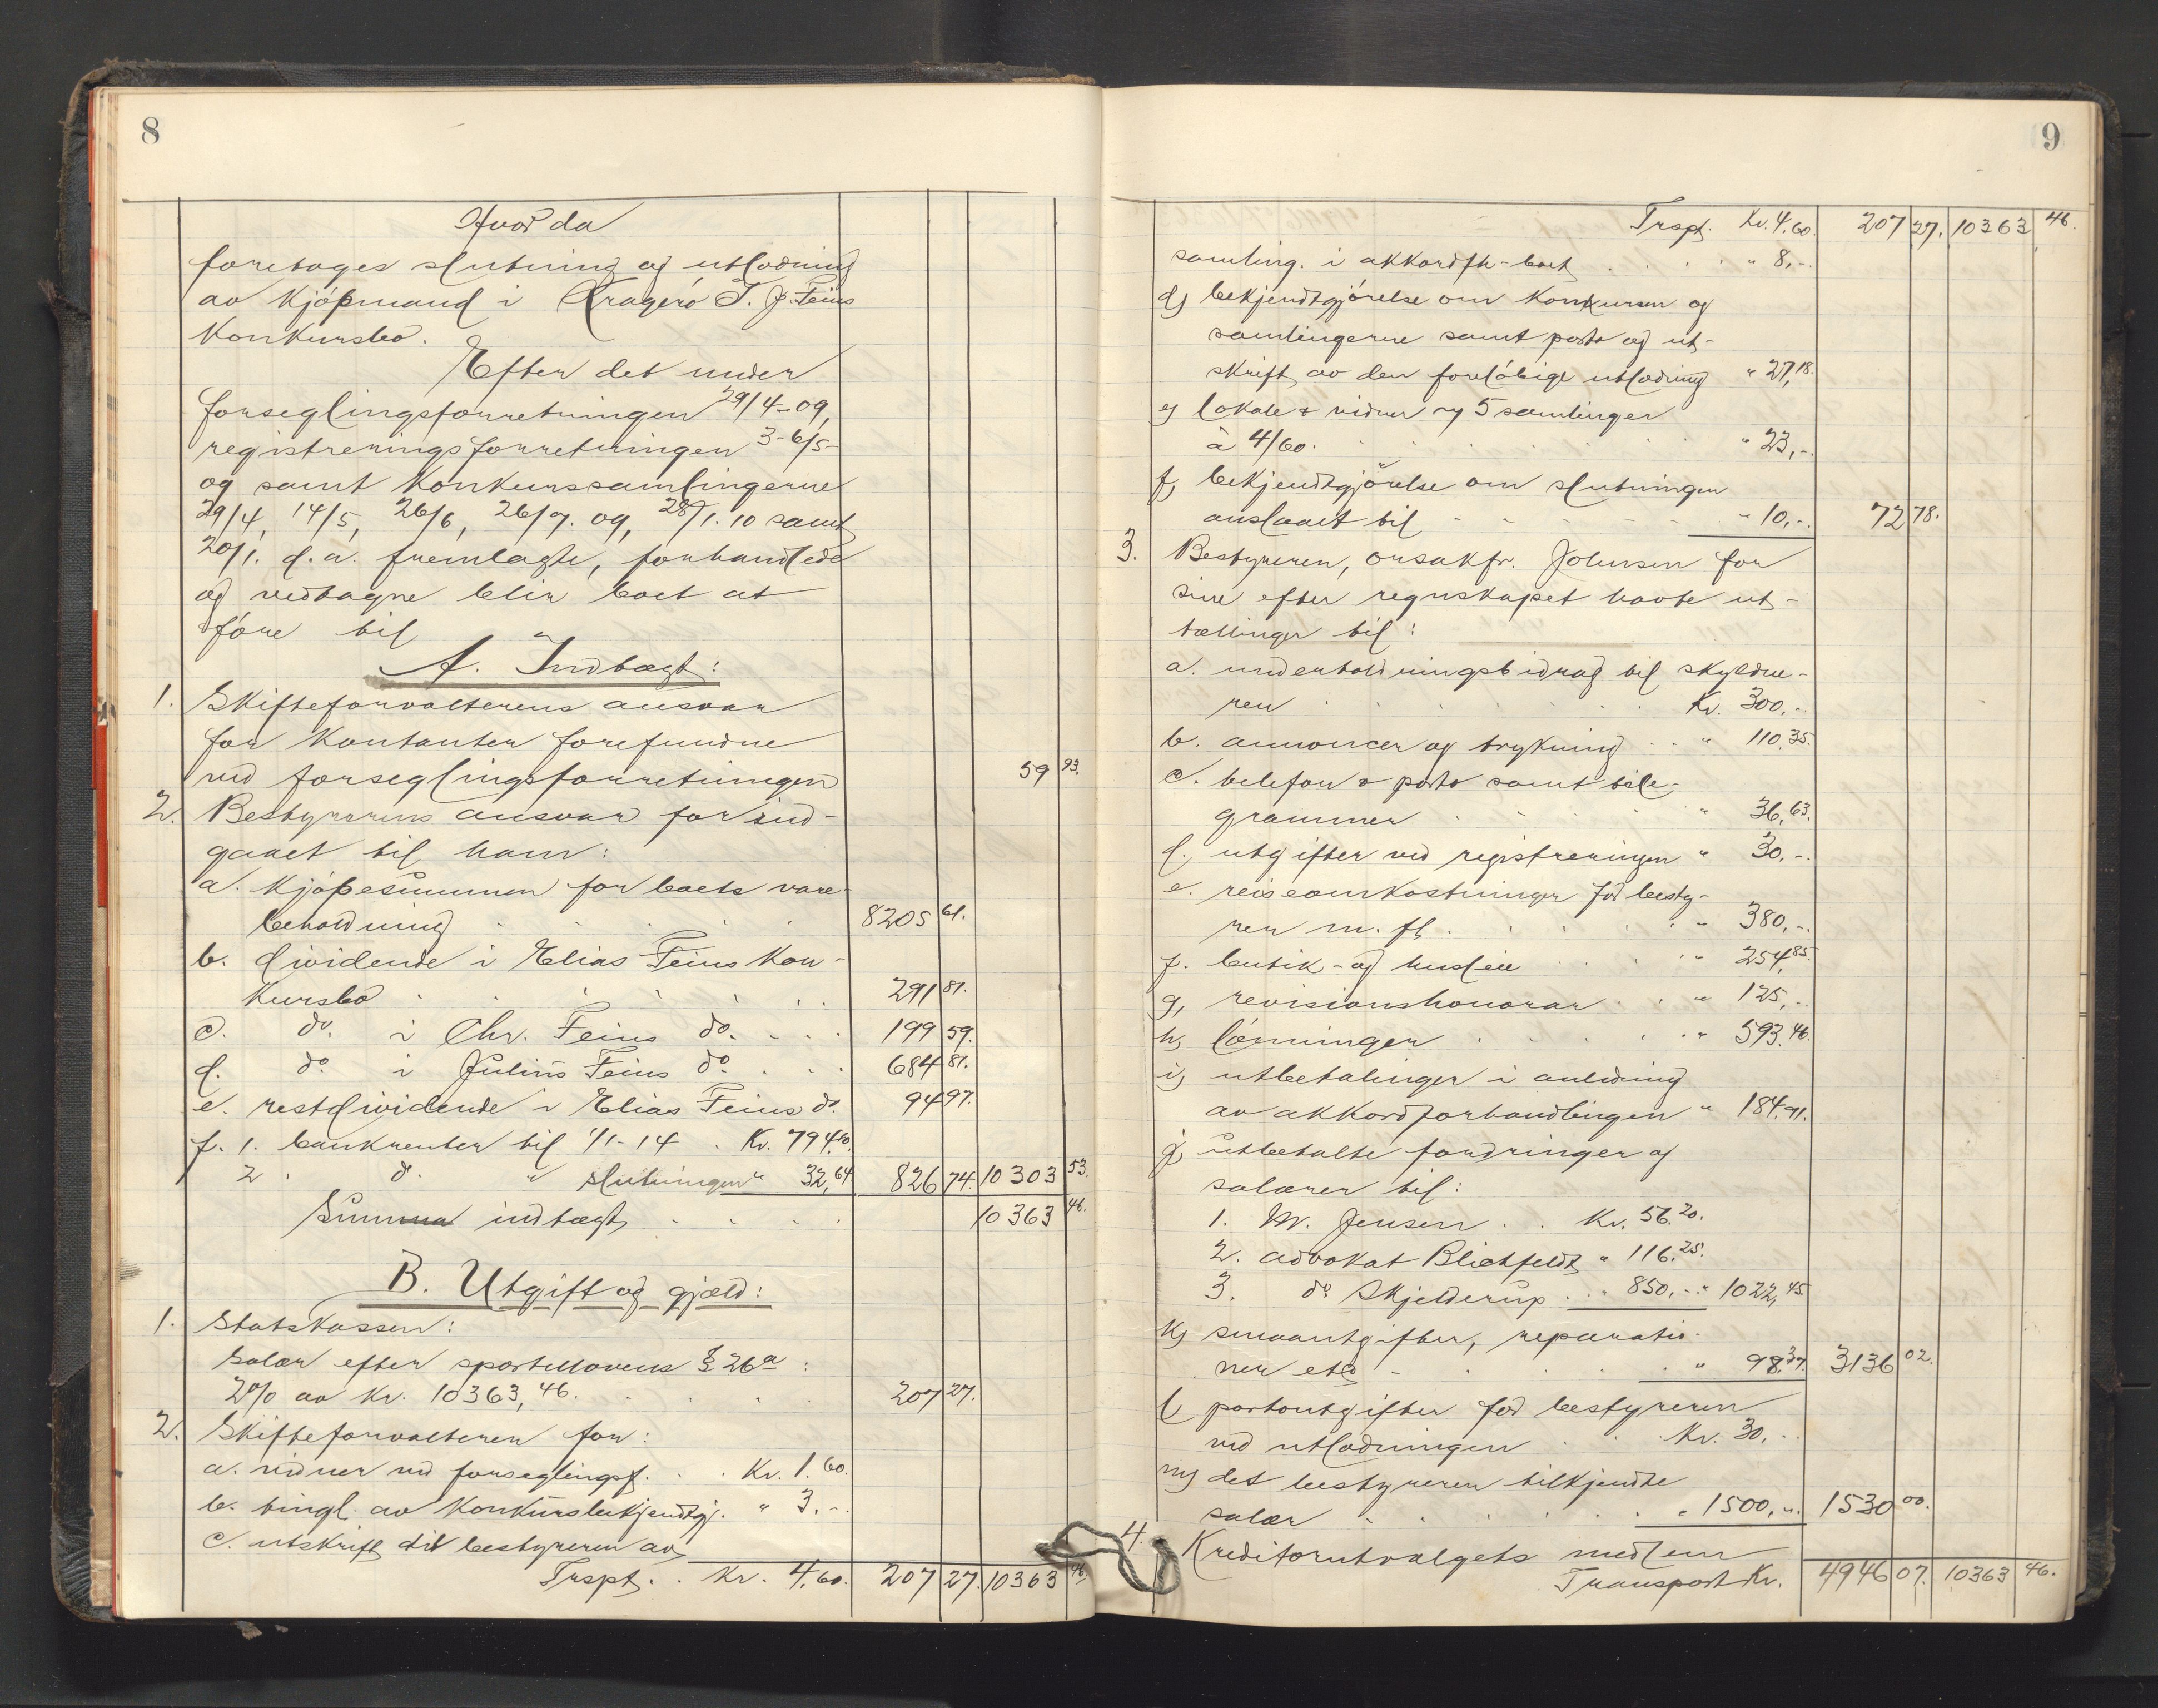 8
Hvorda
foretages slutning og utlodning
av kjøpmand i Kragerø T. J. Feius
konkursbo.
Efter det under
forseglingsforretningen 29/4-09,
registreringsforretningen 3-6/5-
og samt konkurssamlingerne
29/4, 14/5, 26/6, 26/7. 09, 28/1. 10 samt
20/1. d. a. fremlagte, forhandlede
og vedtagne blir boet at
føre til
A. Indtægt:
1. Skifteforvalterens ansvar
for kontanter forefundne
ved forseglingsforretningen 59 93.
2. Bestyrerens ansvar for ind-
gaaet til ham:
a. kjøpesummen for boets vare-
beholdning . . . . 8205 61.
b. dividende i Elias Feius kon-
kursbo . . . . . . 291 81.
c. do. i Chr. Feius do. . . . 199 59.
d. do i Julius Feius do. . . . 684 81.
e. restdividende i Elias Feius do. 94 97.
f. 1. bankrenter til 1/1-14 . Kr. 794.10
2. d. " slutningen " 32,64 826 74. 10303 53.
Summa indtægt . . . . 10363 46.
B. Utgift og gjæld:
1. Statskassen:
Salær efter sportellovens § 26 a :
2% av kr. 10363,46. . . . 207 27.
2. Skifteforvalteren for:
a. vidner ved forseglingsf. . . Kr. 1.60.
b. tingl. av konkursbekjendtgj. " 3.-
c. utskrift til bestyreren av
Trspt. . Kr. 4,60. 207 27. 10363 46.
9
Trspt. Kr. 4.60. 207 27. 10363 46.
samling. i akkordfh-boet . . . . " 8,-.
d, bekjendtgjørelse om konkursen og
samlingerne samt porto og ut-
skrift av den foreløbige utlodning " 27,18.
e, lokale & vidner v 5 samlinger
à 4/60. . . . . . . " 23,-.
f, bekjendtgjørelse om slutningen
anslaaet til - - - - - - " 10,-. 72 78.
3. Bestyreren, orsakfr. Johnsen for
sine efter regnskapet havte ut-
tællinger til:
a. underholdningsbidrag til skyldne-
ren . . . . . . . Kr. 300,-.
b. annoncer og trykning . . " 110.35.
c. telefon & porto samt tele-
grammer . . . . . " 36,63.
d. utgifter ved registreringen " 30,-.
e. reiseomkostninger for besty-
rer m. fl. . . . . . " 380,-.
f. butik- og husleie . . . " 254,85.
g, revisionshonorar . . " 125,-.
h, lønninger . . . . . " 593.46.
i, utbetalinger i anledning
av akkordforhandlingen " 184.91.
j, utbetalte fordringer og
salærer til:
1. M. Jensen . . Kr. 56.20.
2. advokat Blichfeldt " 116.25.
3. do Skjelderup . . " 850,-. " 1022,45.
k, smaautgifter, reparatio-
ner etc - . . . " 98.37. 3136 02.
l, portoutgifter for bestyreren
ved utlodningen . . Kr. 30,-.
m, det bestyreren tilkjendte
salær . . . . . . " 1500,-. 1530 00.
4. Kreditorutvalgets medlem
Transport Kr. 4946 07. 10363 46.